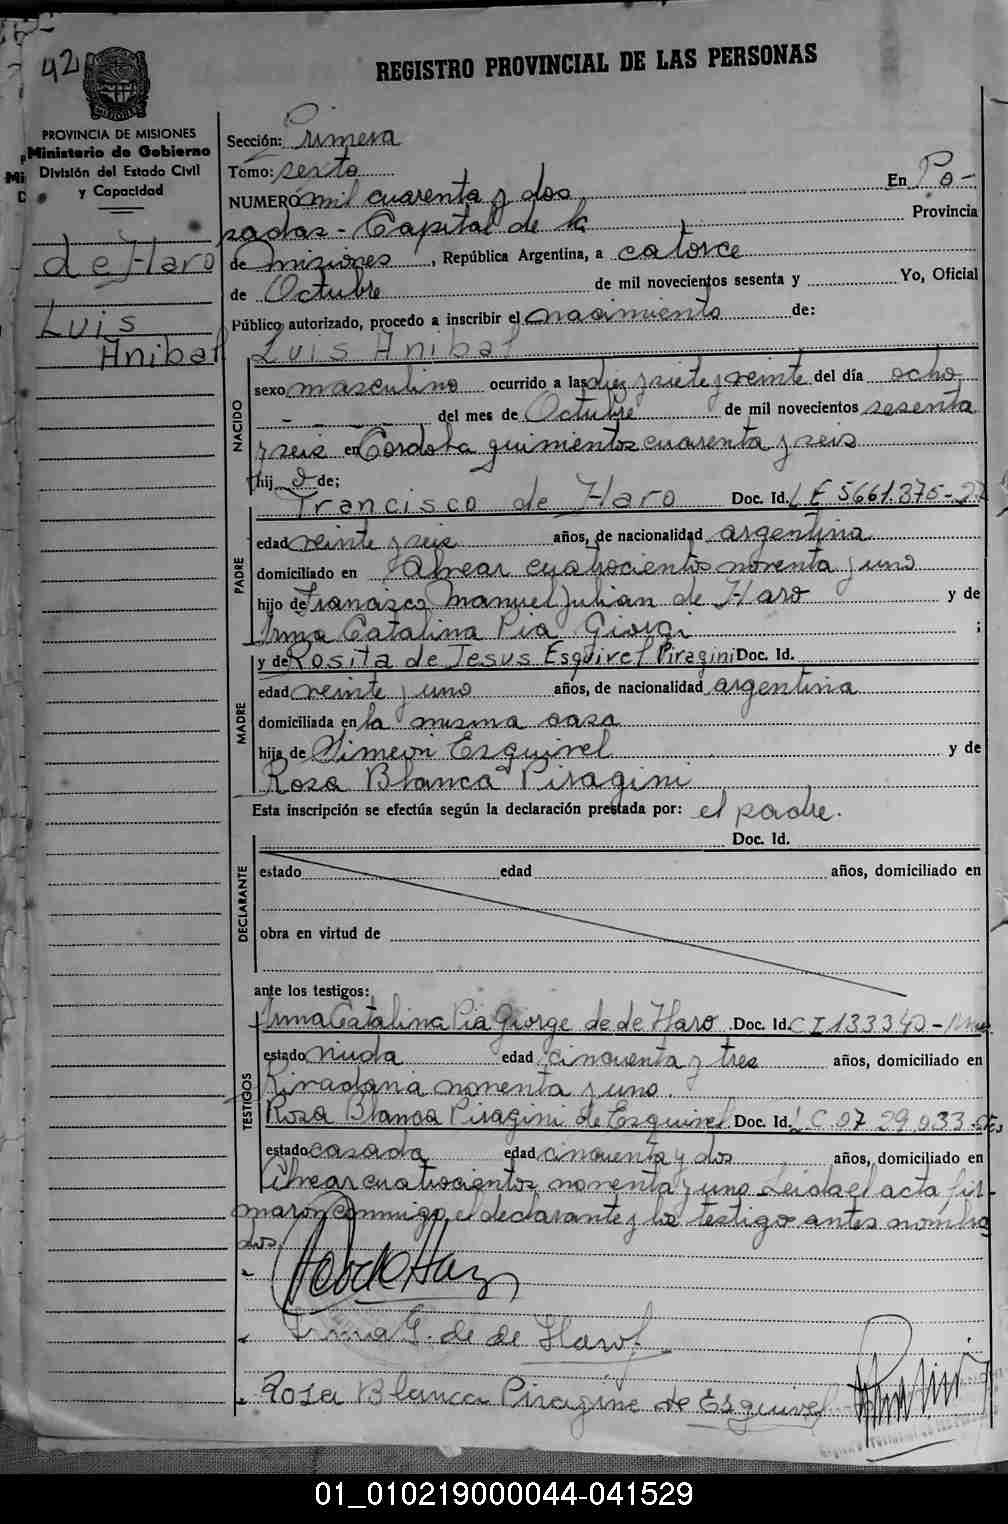 42
REGISTRO PROVINCIAL DE LAS PERSONAS
PROVINCIA DE MISIONES
Ministerio de Gobierno
División del Estado Civil
y Capacidad
de Haro
Luis
Anibal
Sección: Primera
Tomo: sexto
NUMERO mil cuarenta y dos En Po-
sadas - Capital de la Provincia
de Misiones, República Argentina, a catorce
de Octubre de mil novecientos sesenta y Yo, Oficial
Público autorizado, procedo a inscribir el nacimiento de:
Luis Anibal
NACIDO
sexo masculino ocurrido a las diez y siete y veinte del día ocho
del mes de Octubre de mil novecientos sesenta
y seis en Cordoba quinientos cuarenta y seis
hij o de;
PADRE
Francisco de Haro Doc. Id. L E 5661375-
edad veinte y seis años, de nacionalidad argentina
domiciliado en Alvear cuatrocientos noventa y uno
hijo de Francisco Manuel Julian de Haro y de
Irma Catalina Pia Giorgi ;
MADRE
y de Rosita de Jesus Esquivel Piragini Doc. Id.
edad veinte y uno años, de nacionalidad argentina
domiciliada en la misma casa
hija de Simeon Esquivel y de
Rosa Blanca Piragini
Esta inscripción se efectúa según la declaración prestada por: el padre.
DECLARANTE
Doc. Id.
estado edad años, domiciliado en
obra en virtud de
ante los testigos:
TESTIGOS
Irma Catalina Pia Giorge de de Haro Doc. Id. C I 133340-
estado viuda edad cincuenta y tres años, domiciliado en
Rivadavia noventa y uno.
Rosa Blanca Piragini de Esquivel Doc. Id. L C 07 29 033
estado casada edad cincuenta y dos años, domiciliado en
Alvear cuatrocientos noventa y uno Leida el acta fir-
maron conmigo, el declarante y los testigos antes nombra
dos
Irma G. de de Haro
Rosa Blanca Piragine de Esquivel
01_010219000044-041529